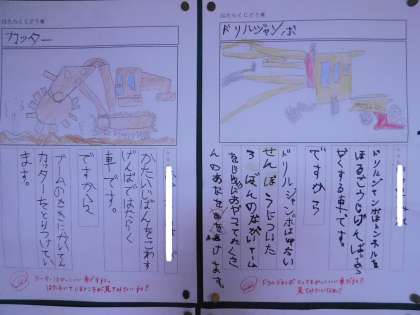 はたらくじどう車
カッター
かたいじばんをこわす
げんばではたらく
車です。
ですから
アームのさきにかいてん
カッターをとりつけてい
ます。
はたらいているところが見てみたいね！
はたらくじどう車
ドリルジャンボ
ドリルジャンボはトンネルを
ほるこうじげんばで
する車です。
ですから
ドリルジャンボは
せんぽうについた
3ぼんのながいアーム
を
んのあなをあけます。
かっこいい車だね
見てみたいなぁ！